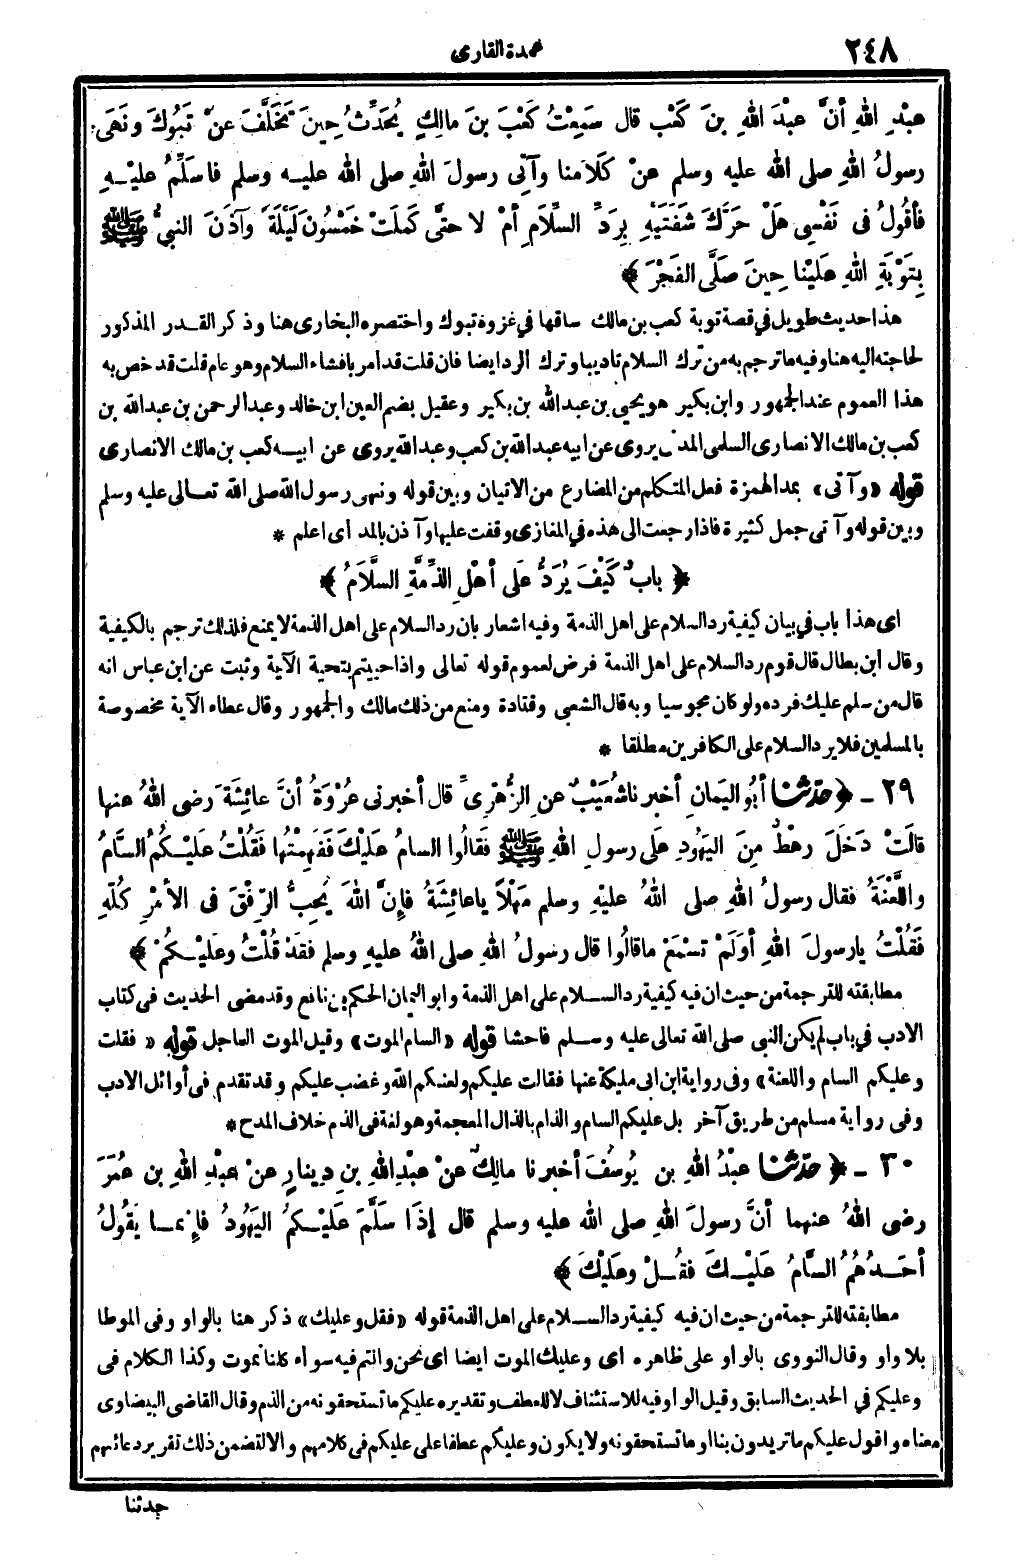 ٢٤٨
عمدة القارى
عبْدِ اللهِ أنَّ عبْدَ اللهِ بنَ كَعْب قال سَمِعْتُ كَعْبَ بنَ مالِكٍ يُحَدِّثُ حِينَ تَخَلَّفَ عنْ تَبُوكَ ونَهَى
رسولُ اللهِ صلى الله عليه وسلم عنْ كَلَامنا وآتِى رسولَ اللهِ صلى الله عليـه وسلم فاُسَلِّمُ عليْـهِ
فأقُولُ فى نَفْسِى هَلْ حَرَّكَ شَفَتَيْهِ بِرَدِّ السَّلَامِ أمْ لا حتَّى كَمَلَتْ خَمْسُونَ لَيْلَةً وآذَنَ النبيُّ ﷺ
بِتَوْبَةِ اللهِ عَلَيْنا حِينَ صَلَّى الفَجْرَ ﴾
هذا حديث طويل في قصة توبة كعب بن مالك ساقها في غزوة تبوك واختصره البخارى هنا وذكر القـدر المذكور
لحاجته اليه هنا وفيه ما ترجم به من ترك السلام تاديبا وترك الرد ايضا فان قلت قد أمر بافشاء السلام وهو عام قلت قد خص به
هذا العموم عند الجمهور وابن بكير هو يحيى بن عبد الله بن بكير وعقيل بضم العين ابن خالد وعبد الرحمن بن عبد الله بن
كعب بن مالك الانصارى السلمى المدنى يروى عن ابيه عبد الله بن كعب وعبد الله يروى عن ابيـه كعب بن مالك الانصارى
قوله «وآتى» بمد الهمزة فعل المتكلم من المضارع من الاتيان وبين قوله ونهى رسول الله صلى الله تعـالى عليه وسلم
وبين قوله وآتى جمل كثيرة فاذا رجعت الى هذه في المغازى وقفت عليها وآذن بالمد اى اعلم *
﴿ بابٌ كَيْفَ يُرَدُّ عَلَى أهْلِ الذِّمَّةِ السَّلَامُ ﴾
اى هذا باب في بيان كيفية رد السلام على اهل الذمة وفيه اشعار بان رد السلام على اهل الذمة لا يمنع فلذلك ترجم بالكيفية
وقال ابن بطال قال قوم رد السلام على اهل الذمة فرض لعموم قوله تعالى واذا حييتم بتحية الآية وثبت عن ابن عباس انه
قال من سلم عليك فرده ولو كان مجوسيا وبه قال الشعبى وقتادة ومنع من ذلك مالك والجمهور وقال عطاء الآية مخصوصة
بالمسلمين فلا يرد السلام على الكافرين مطلقا *
٢٩ - ﴿ حدّثنا أبُو اليَمانِ أخبرنا شُعَيْبٌ عنِ الزُّهْرِيِّ قال أخبرنى عُرْوَةُ أنَّ عائِشَةَ رضى اللهُ عنها
قالَتْ دَخَلَ رَهْطٌ مِنَ اليَهُودِ عَلَى رسولِ اللهِ ﷺ فَقالُوا السامُ عَلَيْكَ فَفَهِمْتُها فَقُلْتُ عَلَيْـكُمُ السَّامُ
واللَّعْنَةُ فقال رسولُ اللهِ صلى اللهُ عليْهِ وسلم مَهْلاً ياعائِشَةُ فإنَّ اللهَ يُحِبُّ الرِّفْقَ فى الأمْرِ كُلِّهِ
فَقُلْتُ يارسولَ اللهِ أوَلَمْ تَسْمَعْ ماقالُوا قال رسولُ اللهِ صلى اللهُ عليهِ وسلم فقَدْ قُلْتُ وعَلَيْـكُمْ ﴾
مطابقته للترجمة من حيث ان فيه كيفية رد السـلام على اهل الذمة وابو اليمان الحكم بن نافع وقد مضى الحديث فى كتاب
الادب في باب لم يكن النبى صلى الله تعالى عليه وسـلم فاحشا قوله «السام الموت» وقيل الموت العاجل قوله « فقلت
وعليكم السام واللعنة» وفى رواية ابن ابى مليكة عنها فقالت عليكم ولعنكم الله وغضب عليكم وقد تقدم فى أوائل الادب
وفى رواية مسلم من طريق آخر بل عليكم السام والذام بالذال المعجمة وهو لغة فى الذم خلاف المدح *
٣٠ - ﴿ حدّثنا عبْدُ اللهِ بن يُوسُفَ أخبرنا مالِكٌ عنْ عبْدِ اللهِ بنِ دِينارٍ عنْ عبْدِ اللهِ بن عُمَرَ
رضى اللهُ عنهما أنَّ رسولَ اللهِ صلى الله عليه وسلم قال إذَا سَلَّمَ عَلَيْـكُمُ اليَهُودُ فإنمـا يَقُولُ
أحَـدُهُمُ السَّامُ عَلَيْـكَ فقُـلْ وعَلَيْكَ ﴾
مطابقته للترجمة من حيث ان فيه كيفية رد السـلام على اهل الذمة قوله «فقل وعليك» ذكر هنا بالواو وفى الموطا
بلا واو وقال النووى بالواو على ظاهره اى وعليك الموت ايضا اى نحن وانتم فيه سواء كلنا نموت وكذا الكلام فى
وعليكم في الحديث السابق وقيل الواو فيه للاستئناف لا للعطف وتقديره عليكم ما تستحقونه من الذم وقال القاضى البيضاوى
معناه واقول عليكم ما تريدون بنا او ما تستحقونه ولا يكون وعليكم عطفا على عليكم فى كلامهم والا لتضمن ذلك تقرير دعائهم
حدثنا